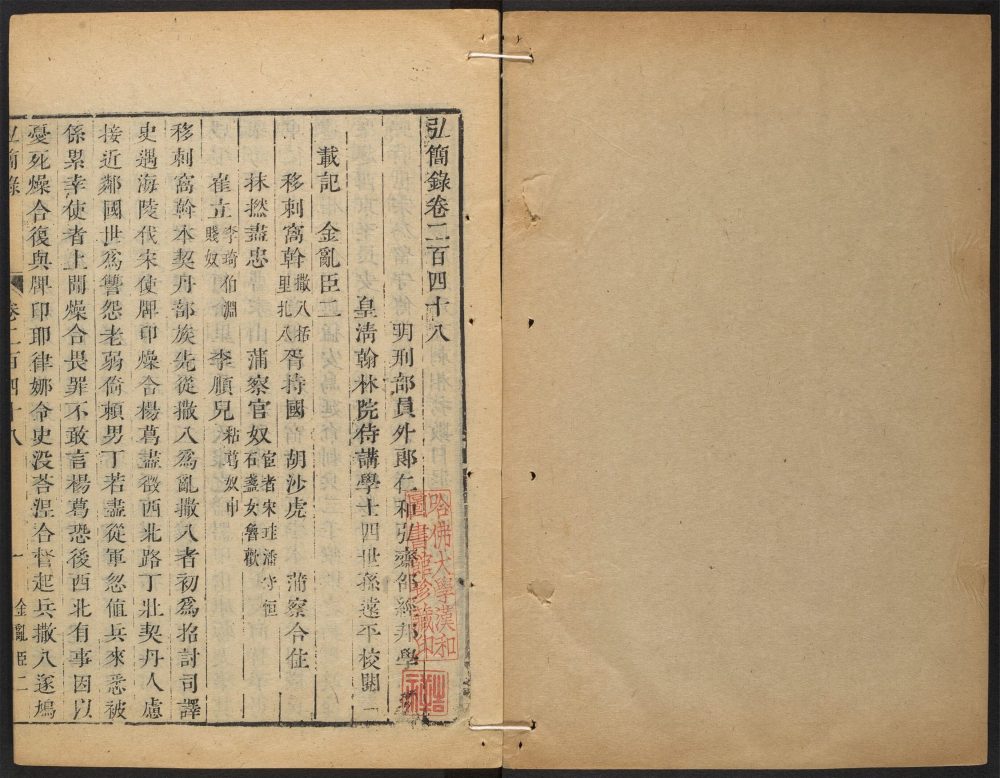 弘簡錄卷二百四十八
明刑部員外郎仁和弘齋邵經邦學
皇清翰林院侍講學士四世孫遠平校閱
載記 金亂臣
移剌窩斡 撒八 括里 扎八 胥持國 胡沙虎 蒲察合住
抹撚盡忠 蒲察官奴 宦者宋珪 潘守恒 石盞女魯歡
崔立 李琦 伯淵 賤奴 李順兒 粘葛奴申
移剌窩斡本契丹部族先從撒八爲亂撒八者初爲招討司譯
史遇海陵伐宋使牌印燥合楊葛盡徵西北路丁壯契丹人慮
接近鄰國世爲讐怨老弱倚賴男丁若盡從軍忽値兵來悉被
係累幸使者上聞燥合畏罪不敢言楊葛恐後西北有事因以
憂死燥合復與牌印耶律娜令史没荅涅合督起兵撒八遂鳩
弘簡錄 卷二百四十八 一 金亂臣二
哈佛大學漢和
圖書館珍藏印